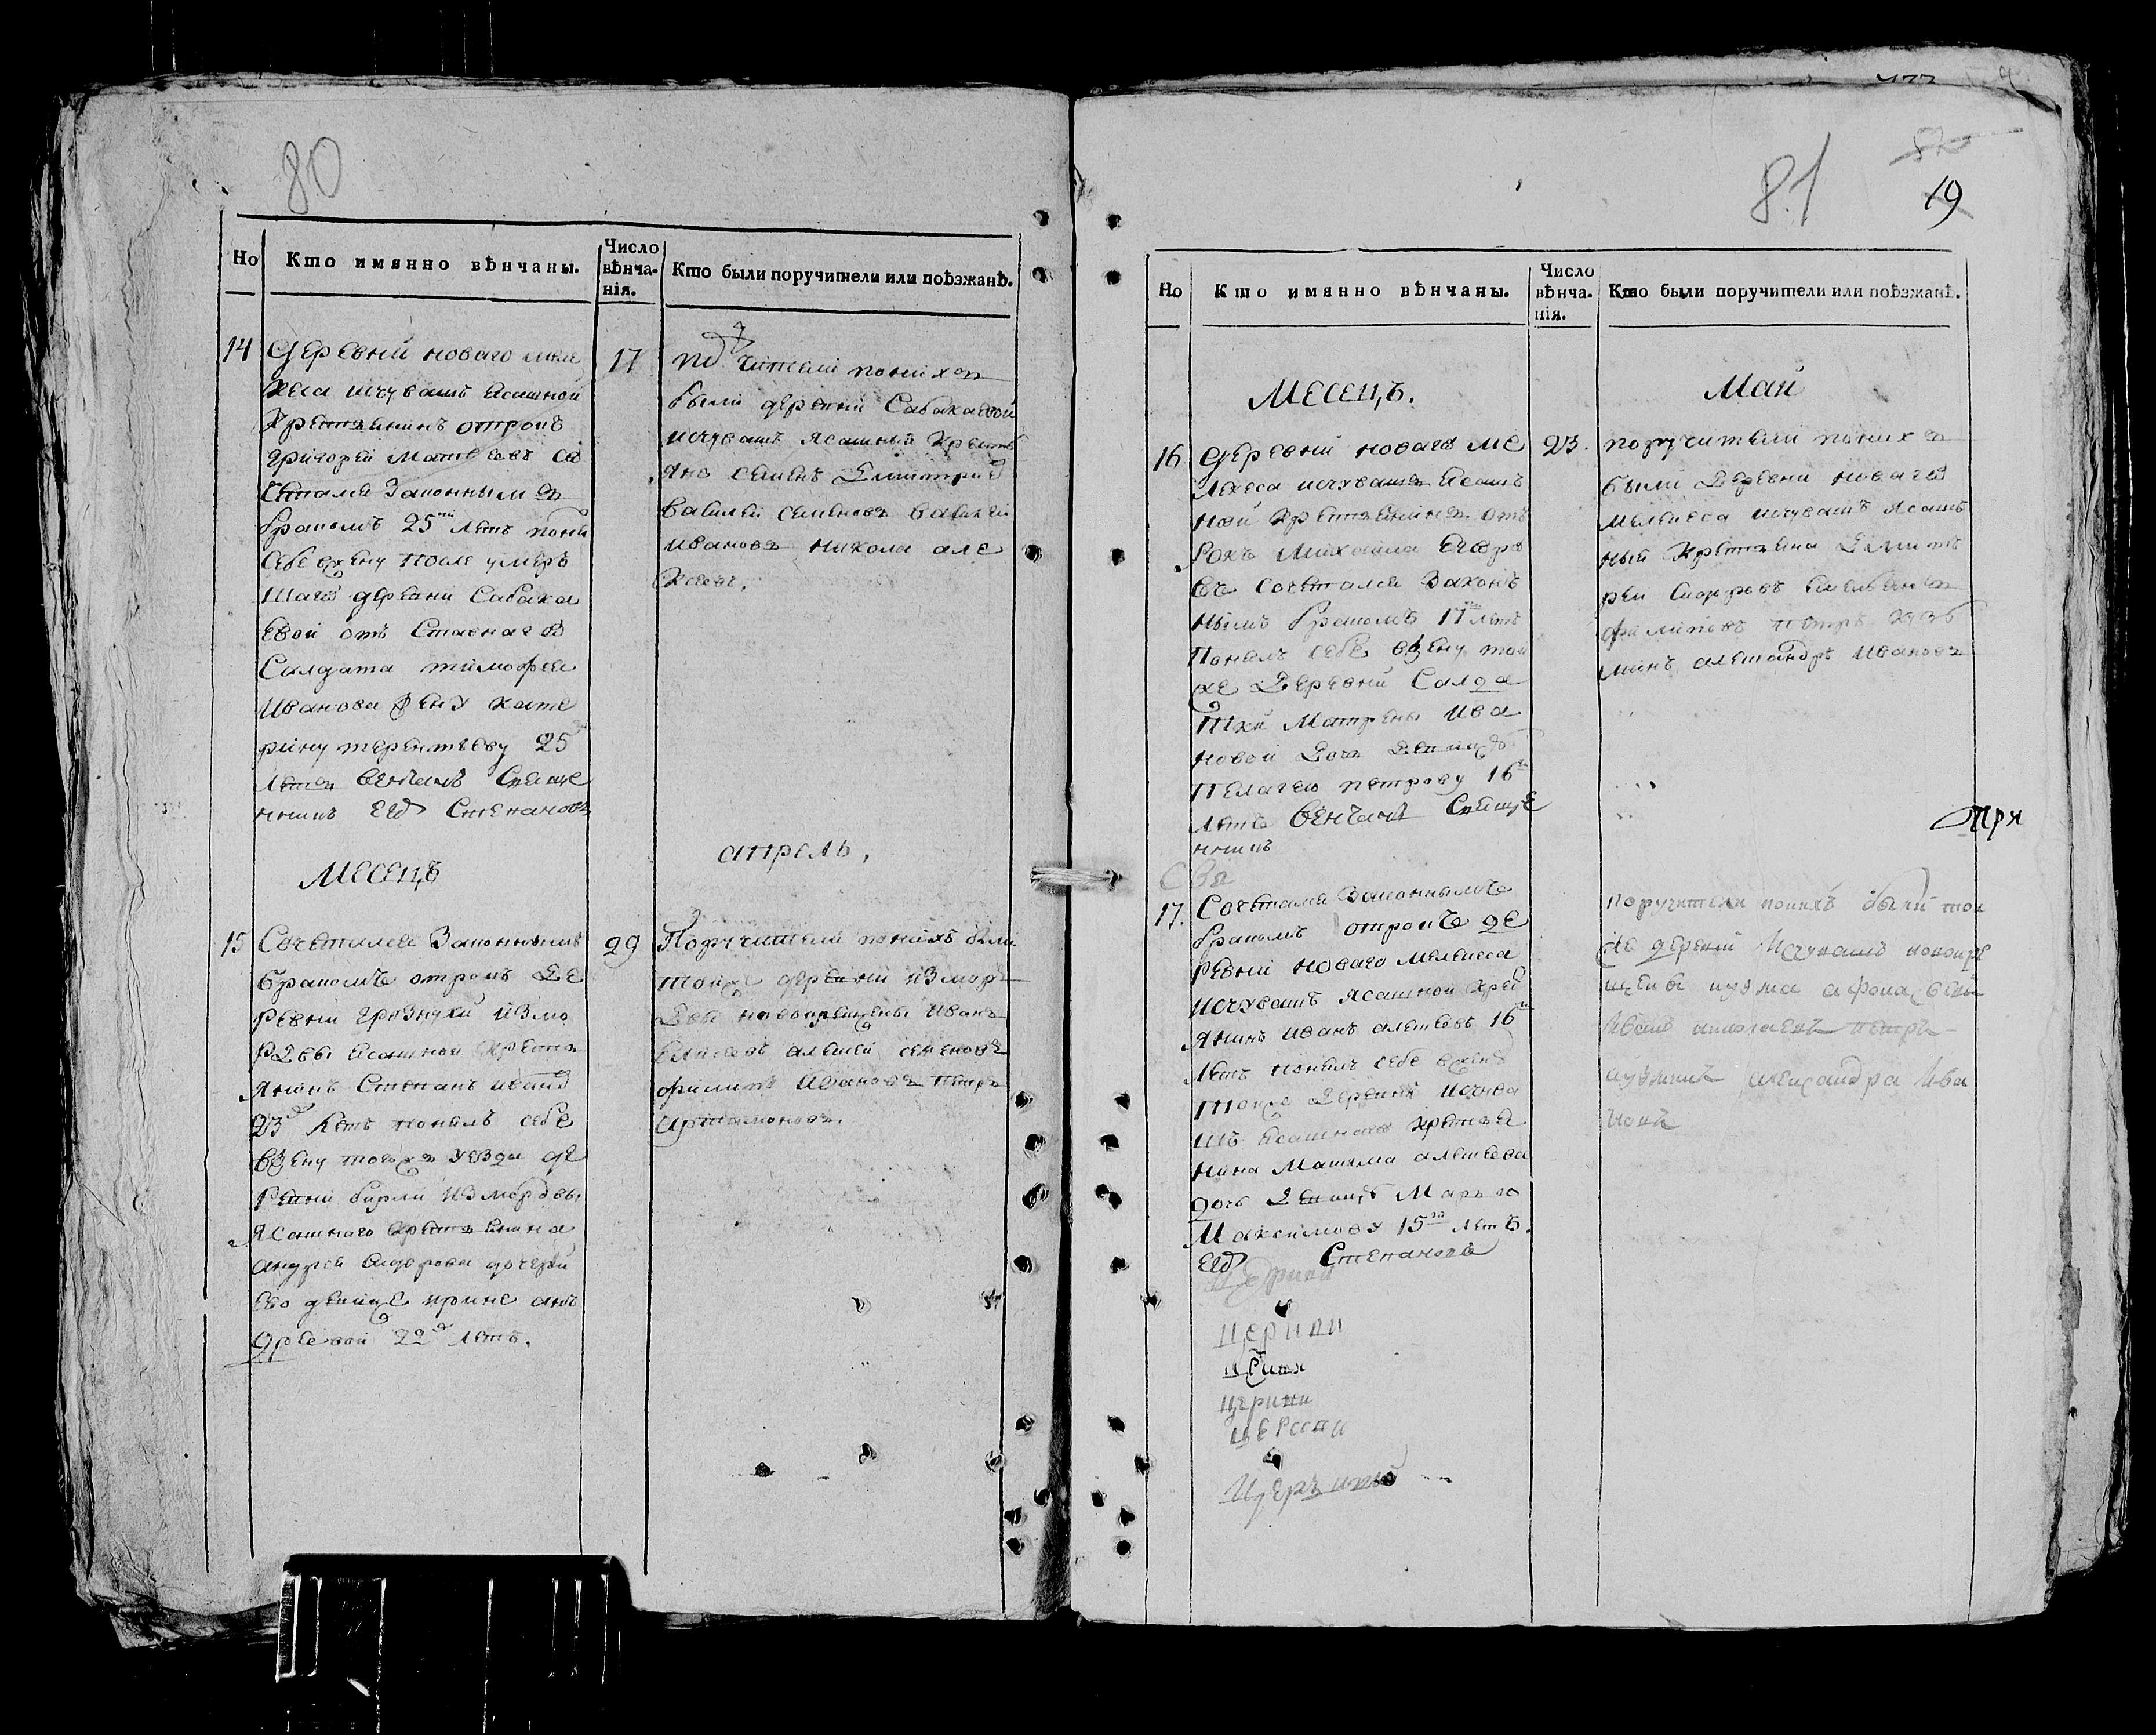 80
Но
Кто имянно вѣнчаны.
Число вѣнча-нія.
Кто были поручители или поѣзжанѣ.
14
деревни новаго меле
кеса исчувашъ ясашной
крестьянинъ отрокъ
григорей Матвеевъ со
четался законнымъ
бракомъ 25 летъ понял
себе жену после умер
шаго деревни Сабака
евой отъ Ставнаго
Салдата тимофея
Иванова жену кате
рину терентьеву 25
летъ венчалъ Свяще
нникъ Его Степановъ
17
были деревни Сабакаевой
исчувашъ ясашныи крестъ
яне семенъ Дмитрие
василей семеновъ василей
ивановъ никола але
ксеевъ.
Месецъ
апрель,
15
Сочетался Законнымъ
бракомъ отрокъ де
ревни грязнухи измо
рдвы ясашной кресть
янинъ Степанъ ивано
23 летъ понялъ себе
вжену тогожъ уезда де
ревни бирли измордвы
Ясашнаго крестьянина
андрея сидорова дочерью
ево девице ирине анъ
дреевой 22 летъ.
29
Поручители поних были
тойже деревни измор
двы новокрещены Иванъ
алексей семеновъ
филипъ Ивановъ петръ
артамоновъ.
81
19
Но
Кто имянно вѣнчаны.
Число вѣнча-нія.
Кто были поручители или поѣзжанѣ.
Месецъ.
Май
16
деревни новаго ме
лекеса исчувашъ ясашъ
ной крестьянинъ отъ
рокъ Михайла Егоро
въ сочетался Законъ
нымъ бракомъ 17 летъ
Понялъ себе вжену той
же деревни Салда
тки Матрены Ива
новой дочь девицу
Пелагею петрову 16
летъ венчалъ Свяще
нникъ
23.
поручители поних
были Деревни новаго
мелекеса исчувашъ ясашъ
ныи крестьяна Дмит
реи Сидоровъ емельянъ
филиповъ петръ кузь
минъ александръ ивановъ
При
17.
Сочетался Законнымъ
бракомъ отрокъ де
ревни новаго мелекеса
исчувашъ ясашной крест
янинъ иванъ алексеевъ 16
летъ понялъ себе вжену
тойже деревни исчува
шъ ясашнаго крестья
нина Максима алексеева
дочь девицу Марью
Максимову 15 летъ.
Его Степановъ
поручители понихъ были той
же деревни Исчувашъ новокре
щены кузма афонасьевъ
Иванъ петръ
кузминъ александра Ива
новъ
церкви
церкви